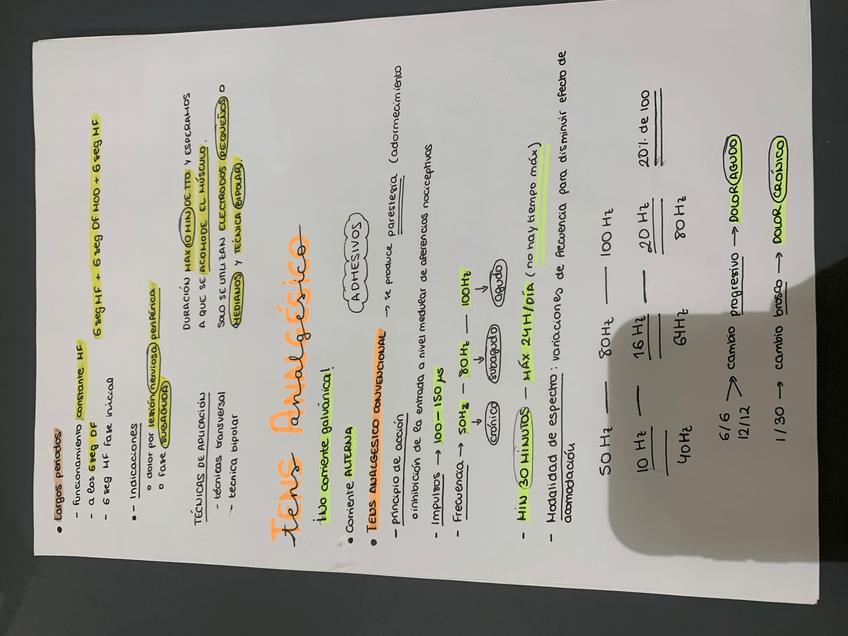 • Largos periodos
- funcionamiento constante HF
- a los 6 seg DF
- 6 seg HF fase inicial
6 seg HF + 6 seg DF MOD + 6 seg HF
• - Indicaciones
o dolor por lesión nerviosa periférica
o fase SUBAGUDA
TÉCNICAS DE APLICACIÓN
- técnicas transversal
- técnica bipolar
DURACIÓN MÁX 10 MIN DE TTO Y ESPERAMOS
A QUE SE ACOMODE EL MÚSCULO.
SOLO SE UTILIZAN ELECTRODOS PEQUEÑOS O
MEDIANOS Y TÉCNICA BIPOLAR.
TENS ANALGÉSICO
tens analgésico
¡NO corriente galvánica!
• Corriente ALTERNA
ADHESIVOS
• TENS ANALGESICO CONVENCIONAL → se produce parestesia (adormecimiento
- principio de acción
o inhibición de la entrada a nivel medular de aferencias nociceptivas
- Impulsos → 100-150 µs
- Frecuencia → 50Hz - 80Hz - 100Hz
crónico subagudo agudo
- MIN 30 MINUTOS - MÁX 24 H/DÍA (no hay tiempo máx)
- Modalidad de espectro: variaciones de frecuencia para disminuir efecto de
acomodación
50 Hz — 80Hz — 100 Hz
10 Hz — 16 Hz — 20 Hz 20% de 100
40Hz 64Hz 80Hz
6/6
12/12 → cambio progresivo → DOLOR AGUDO
1/30 → cambio brusco → DOLOR CRÓNICO